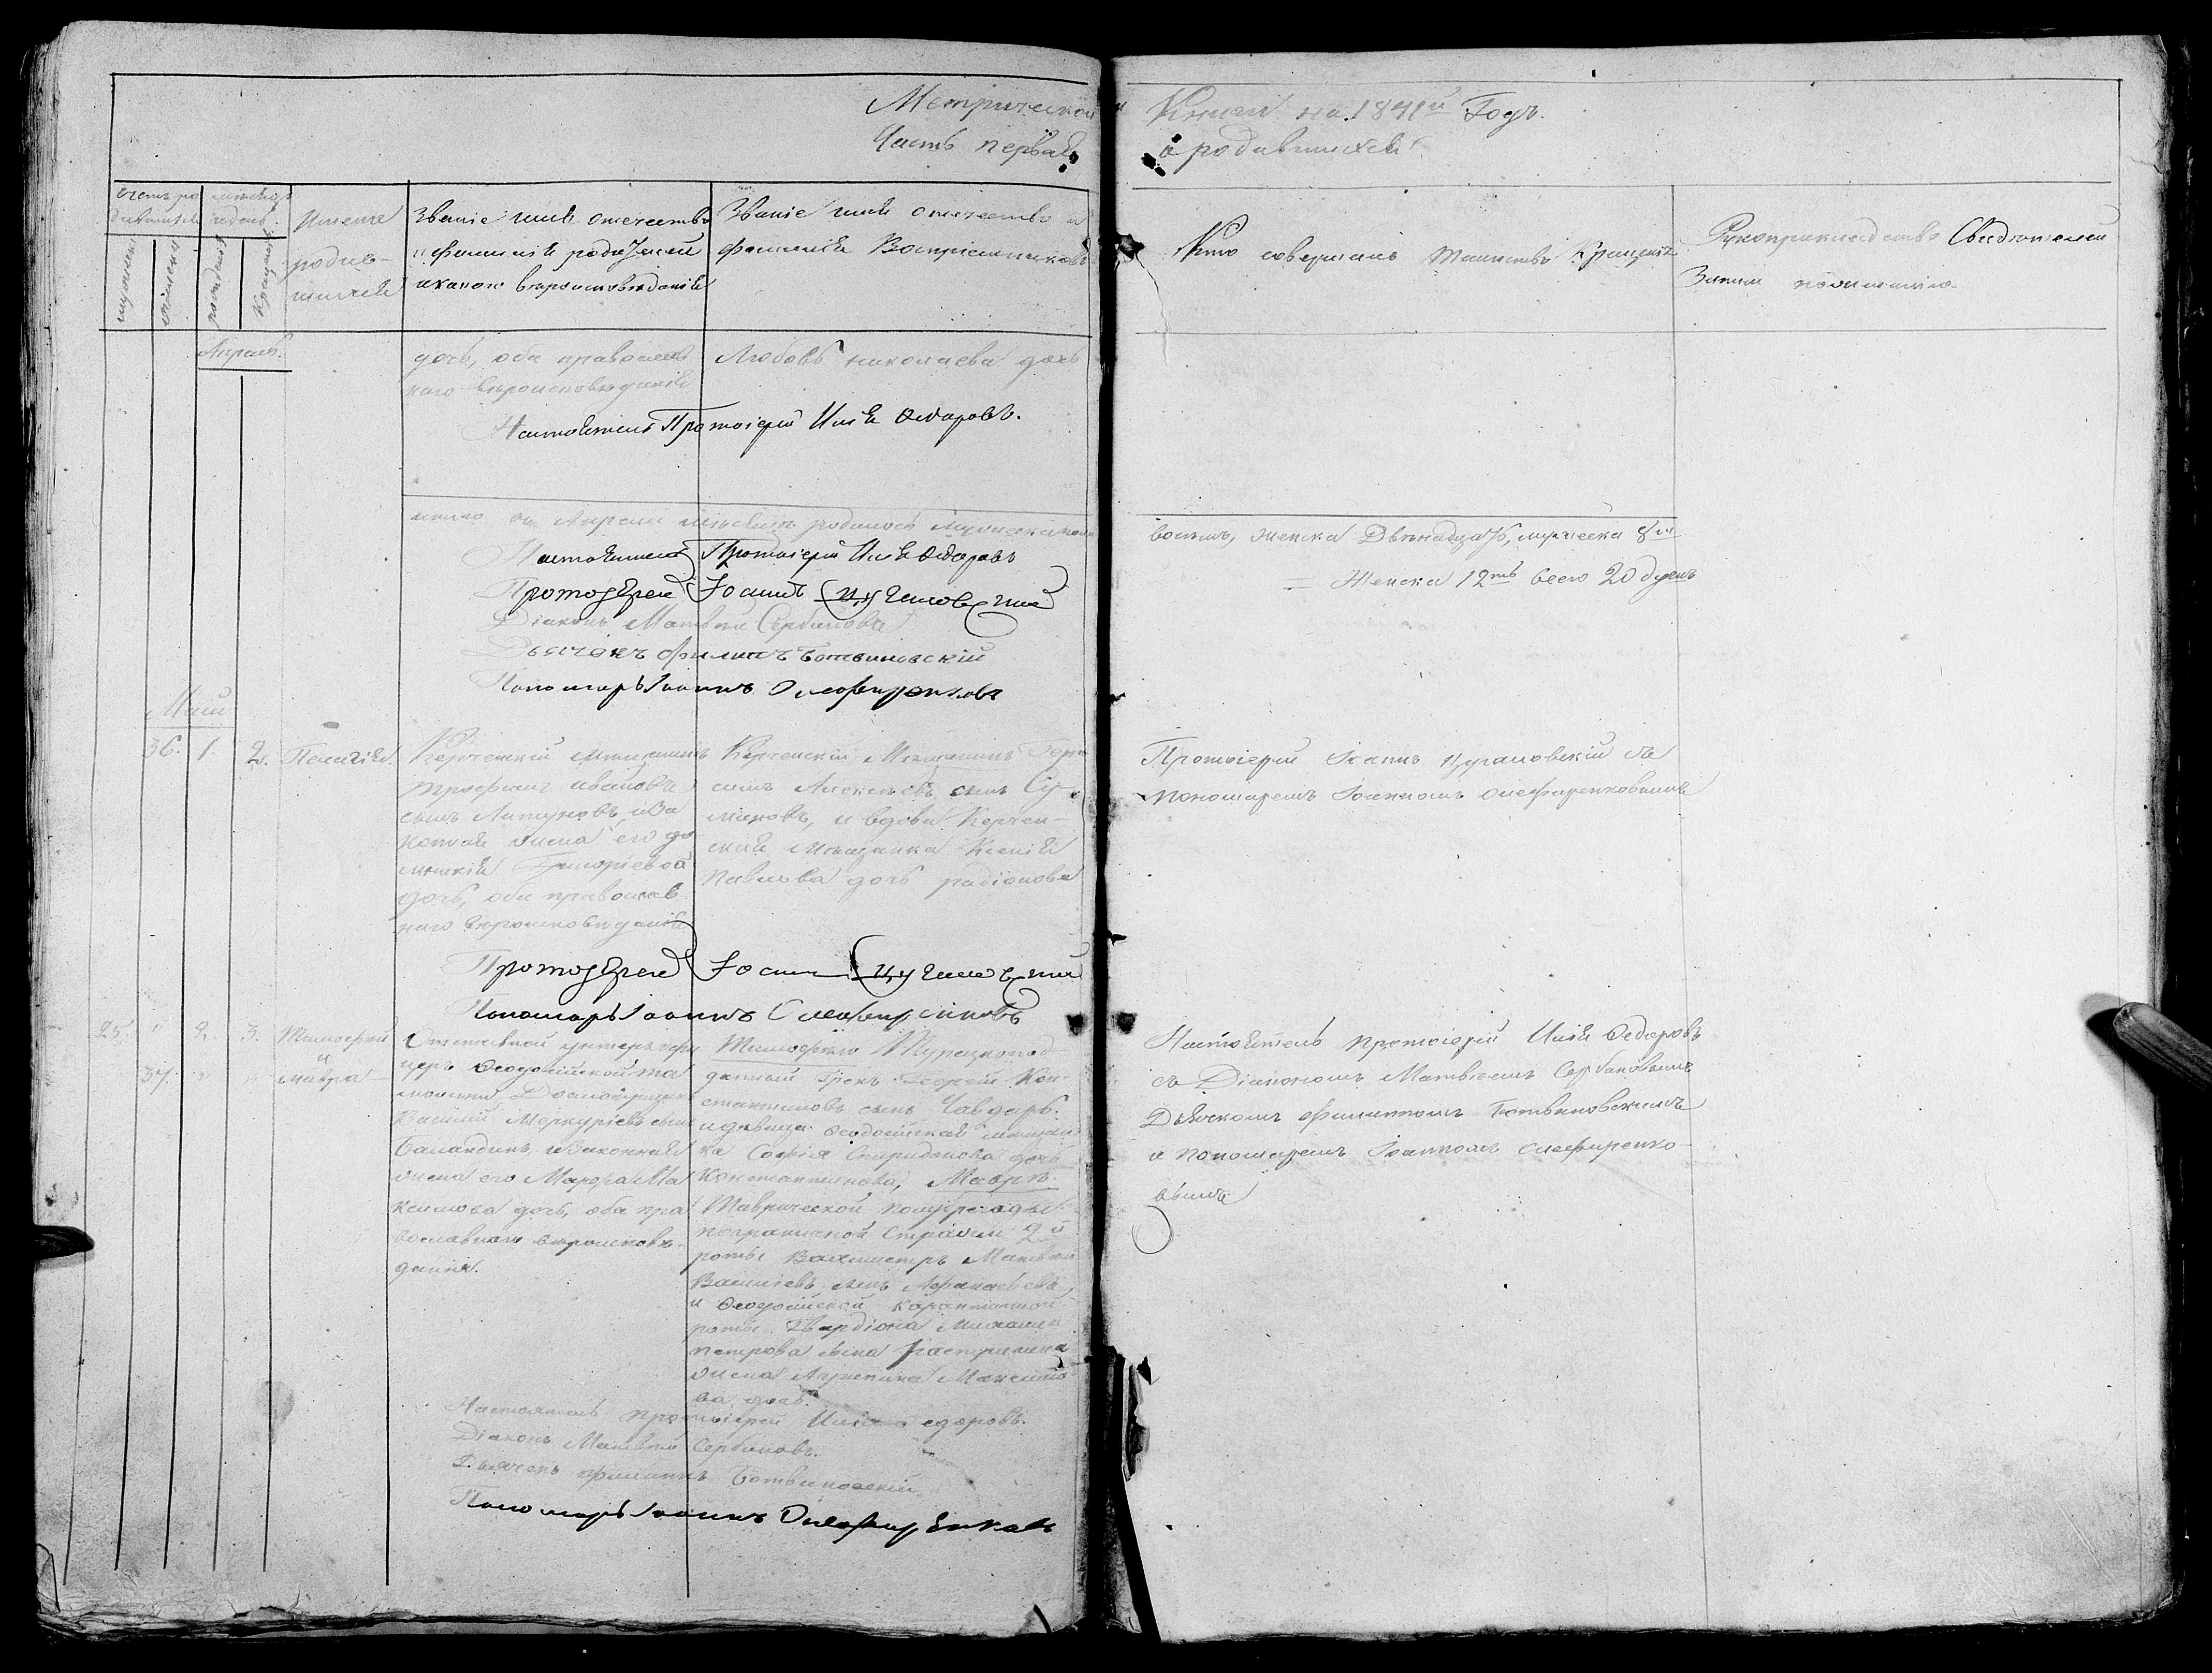 Метрической Книги на 1841й Годъ.
Часть первая о родившихся
Счетъ родившихся
мѣсяцъ и день
мужеска
женска
рожденія
крещенія
Имена
родив-
шихся
Званіе имя отечество
и фамилія родителей
и какого вѣроисповѣданія
Званіе имя отечество и
фамилія Воспріемниковъ
Кто совершалъ таинство крещенія
Рукоприкладство Свидѣтелей
Записи по желанію
Апрель.
дочь, оба православ
наго вѣроисповѣданія
Любовь николаева дочь
Настоятель Протоіерей Илія Ѳедоровъ.
итого въ Апрелѣ мѣсяцѣ родилось мужеска пола
восемь, женска Двѣнадцать, мужеска 8мь
= Женска 12ть всего 20 душъ
Настоятель Протоіерей Илія Ѳедоровъ
Протоіерей Іоаннъ
Діаконъ Матвей Сербиновъ
Дьячекъ Филиппъ Ботвиновскій
Пономарь Іоаннъ Олефиренковъ
Маій
36. 1. 2. Пелагія.
Керченскій мещанинъ
Трофимъ Ивановъ
сынъ Латуновъ, и За
конная жена его до
мникія Григоріева
дочь, оба православ
наго вѣроисповѣданія
Керченскій Мещанинъ Гера
симъ Алексѣевъ сынъ Су
миновъ, и вдова Керчен-
ская Мѣщанка Ксенія
Павлова дочь радіонова
Протоіерей Іоаннъ Цурановскій съ
пономаремъ Іоанномъ Олефиренковымъ
Протоіерей Іоаннъ
Пономарь Іоаннъ Олефиренковъ
25. " 2. 3. Тимофей
и
37. " " Мавра
Отставной унтеръ офи
церъ Ѳеодосійской та
можни Досмотрщикъ
Василій Меркуріевъ сынъ
Баландинъ, и Законная
жена его Марфа Ма
ксимова дочь, оба пра
вославнаго вѣроисповѣ-
данія.
Тимофею Турецкопод-
данный Грекъ Георгій Кон-
стантиновъ сынъ Чавдаръ.
и дѣвица Ѳеодосійская мещан
ка Софія Спиридонова дочь
Константинова, Маврѣ.
Таврической полубригады
пограничной Стражи 2й
роты Вахмистръ Матвей
Василіевъ сынъ Афанасьевъ,
и Ѳеодосійской карантинной
роты Гвардіона Михаила
петрова сына
жена Агрипина Максимо
ва дочь.
Настоятель протоіерей Илія Ѳедоровъ
съ Діакономъ Матвеемъ Сербиновымъ
Дьячкомъ Филиппомъ Ботвиновскимъ
и пономаремъ Іоанномъ Олефиренко-
вымъ
Настоятель протоіерей Илія Ѳедоровъ.
Діаконъ Матвей Сербиновъ.
Дьячекъ Филиппъ Ботвиновскій
Пономарь Іоаннъ Олефиренковъ